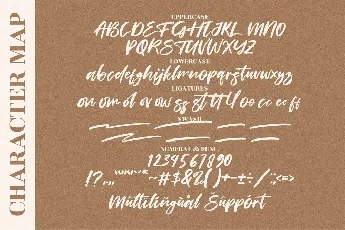 CHARACTER MAP
UPPERCASE
ABCDEFGHIJKL MNO
PQRSTUVWXYZ
LOWERCASE
abcdefghijklmnopqrstuvwxyz
LIGATURES
on om ot ov ow ss st tt ll oo cc ee ff
SWASH
NUMERAL & PUNC.
1234567890
Multilingual Support